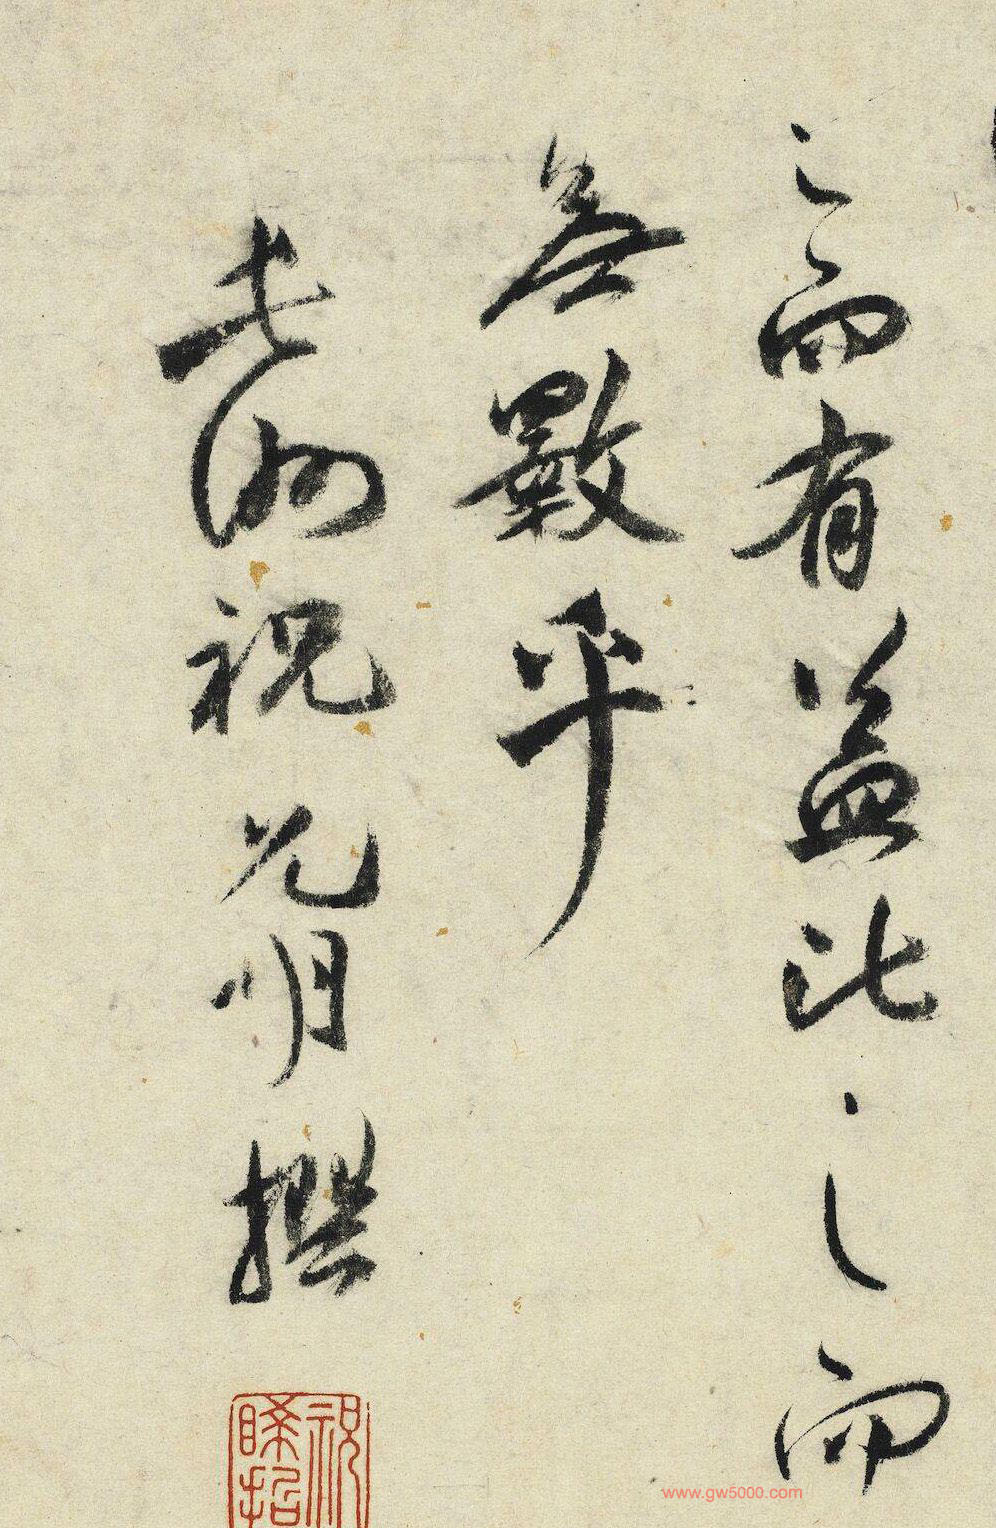 之而有益比之而
無斁乎
長洲祝允明撰
祝
睎
www.gw5000.com